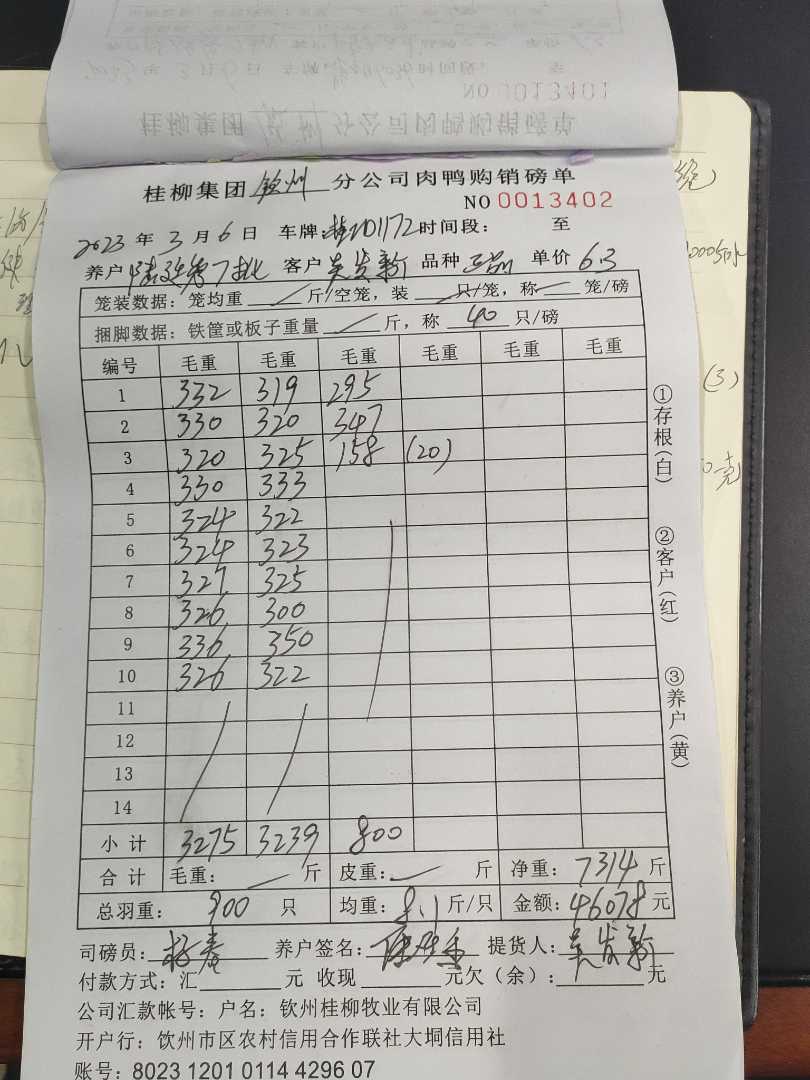 NO 0013401
桂柳集团 分公司肉鸭购销磅单
桂柳集团 钦州 分公司肉鸭购销磅单
NO 0013402
2023 年 3 月 6 日 车牌: 时间段: 至
养户 客户 吴发新 品种 正品 单价 6.3
笼装数据: 笼均重 斤/空笼, 装 只/笼, 称 笼/磅
捆脚数据: 铁筐或板子重量 斤, 称 40 只/磅
编号 毛重 毛重 毛重 毛重 毛重 毛重
1 332 319 295
2 330 320 347
3 320 325 158 (20)
4 330 333
5 324 322
6 324 323
7 327 325
8 326 300
9 336 350
10 326 322
11
12
13
14
小计 3275 3239 800
合计 毛重: 斤 皮重: 斤 净重: 7314 斤
总羽重: 900 只 均重: 8.1 斤/只 金额: 46078 元
司磅员: 养户签名: 提货人: 吴发新
付款方式: 汇 元 收现 元欠(余): 元
公司汇款帐号: 户名: 钦州桂柳牧业有限公司
开户行: 钦州市区农村信用合作联社大垌信用社
账号: 8023 1201 0114 4296 07
①存根(白)
②客户(红)
③养户(黄)
(3)